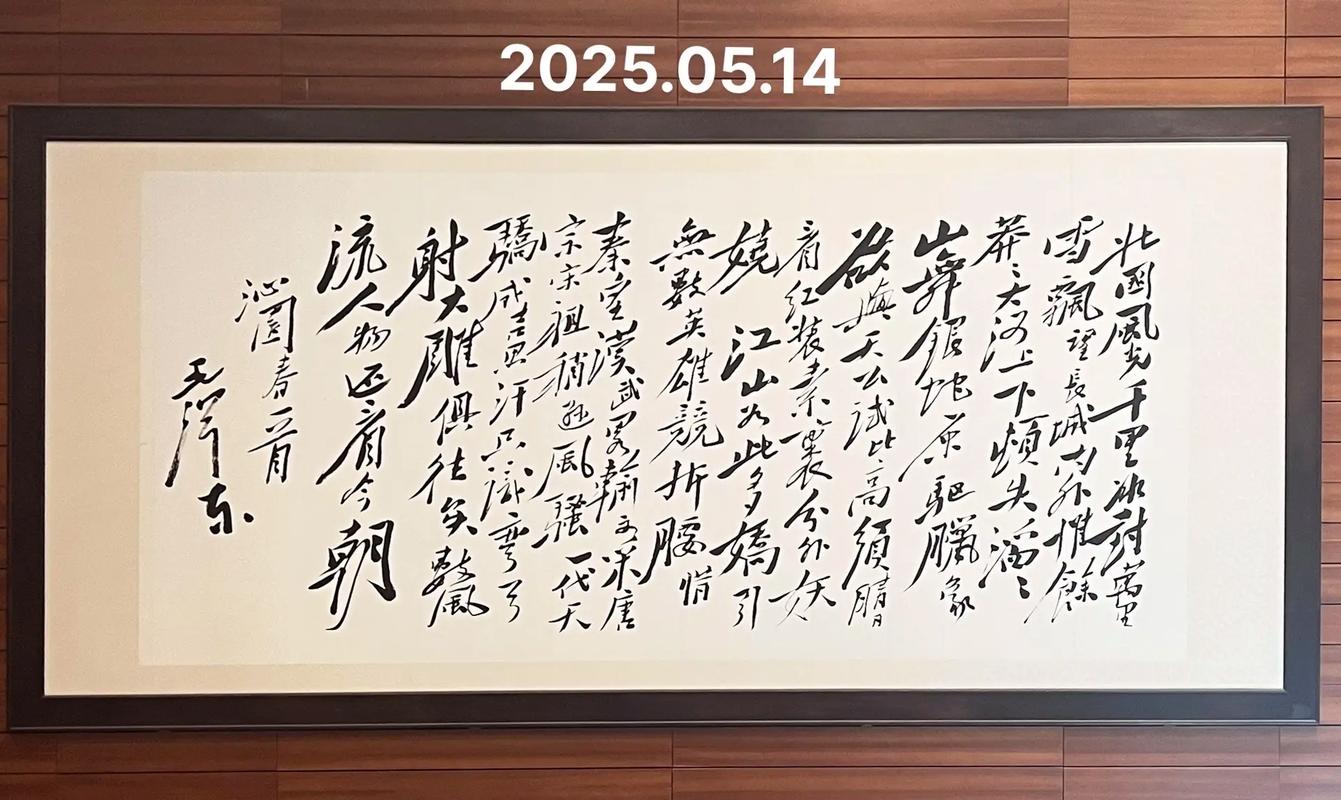 2025.05.14
北國風光千里冰封萬里
雪飄望長城內外惟餘
莽々大河上下頓失滔々
山舞銀蛇原驅臘象
欲與天公試比高須晴日
看紅裝素裹分外妖
嬈江山如此多嬌引
無數英雄競折腰惜
秦皇漢武略輸文采唐
宗宋祖稍遜風騷一代天
驕成吉思汗只識彎弓
射大雕俱往矣數風
流人物还看今朝
沁園春一首
毛澤东